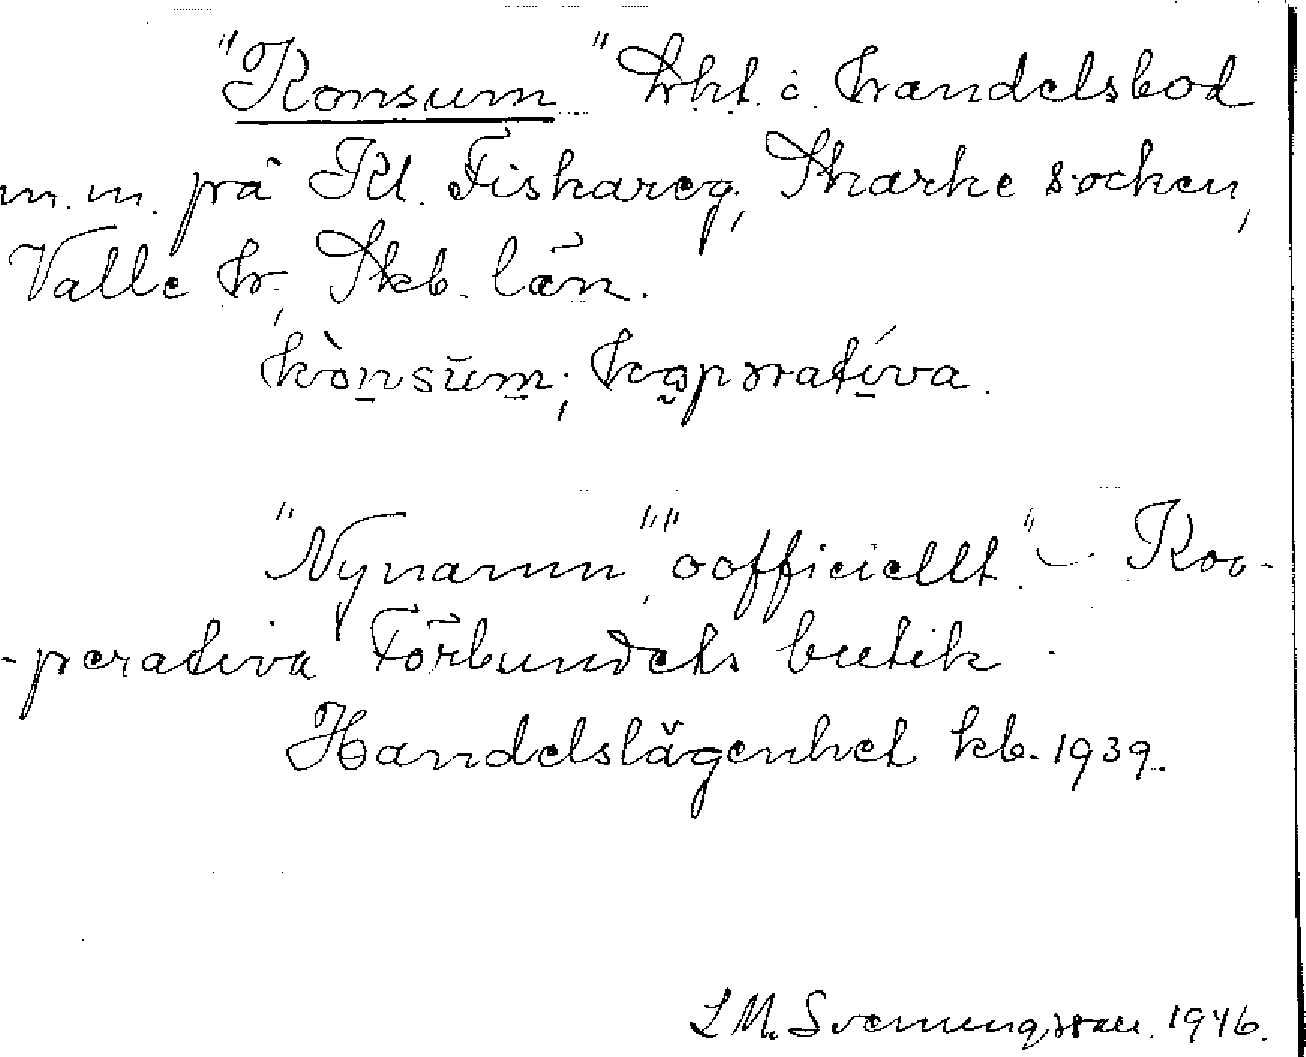 "Konsum" lht. o. handelsbod
m.m. på Kl. Fiskareg., Skarke socken,
Valle hr, Skb. län.
kònsūm; kop ərati ́va.
"Nynamn", "oofficiellt." – Koo-
-perativa Förbundets butik.
Handelslägenhet kb. 1939.
L M. Svenungsson. 1946.